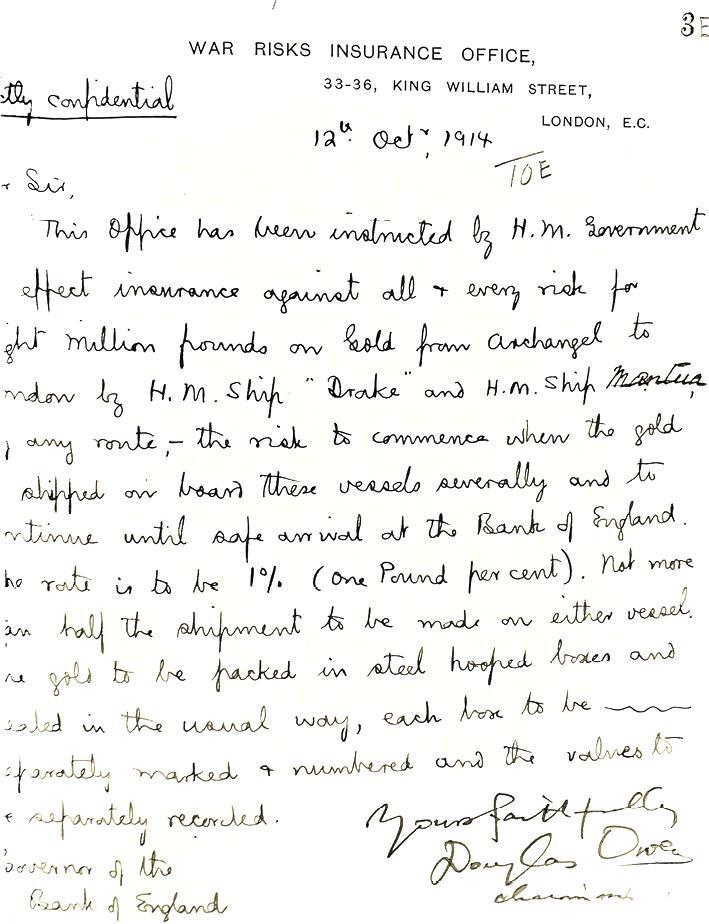 3E
WAR RISKS INSURANCE OFFICE,
33-36, KING WILLIAM STREET,
LONDON, E.C.
tly confidential
12th Octr, 1914
TOE
r Sir,
This Office has been instructed by H.M. Government
effect insurance against all & every risk for
ght million pounds on Gold from Archangel to
ndon by H.M. Ship "Drake" and H.M. Ship Mantua,
any route,- the risk to commence when the gold
shipped on board these vessels severally and to
ntinue until safe arrival at the Bank of England.
he rate is to be 1% (One Pound per cent). Not more
an half the shipment to be made on either vessel.
he gold to be packed in steel hooped boxes and
ealed in the usual way, each box to be
eparately marked & numbered and the values to
e separately recorded.
Yours faithfully
Douglas Owen
chairman
Governor of the
Bank of England